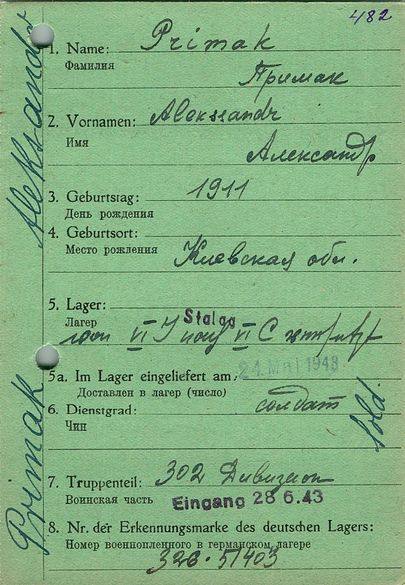 482
1. Name: Primak
Фамилия
Примак
2. Vornamen: Aleksandr
Имя
Александр
3. Geburtstag: 1911
День рождения
4. Geburtsort:
Место рождения
Киевская обл.
5. Lager: Stalag
Лагер
von VI J nach VI C
24. Mai 1943
5a. Im Lager eingeliefert am:
Доставлен в лагер (число)
6. Dienstgrad: солдат
Чин
Sold
7. Truppenteil: 302 Дивизион
Воинская часть
Eingang 28 6.43
8. Nr. der Erkennungsmarke des deutschen Lagers:
Номер военнопленного в германском лагере
326. 51403
Primak Aleksandr